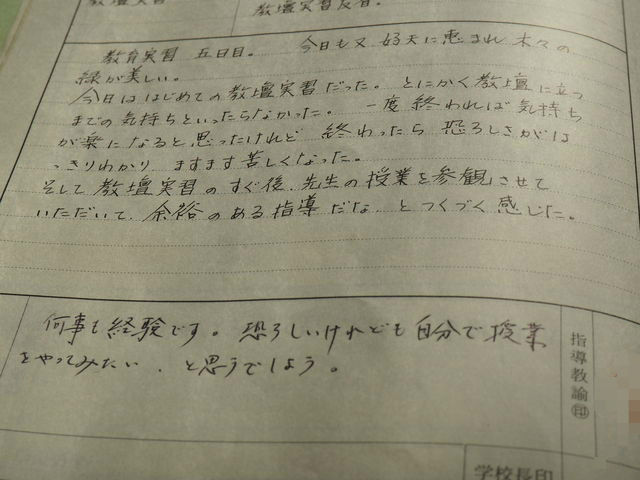 教壇実習
教壇実習反省。
教育実習 五日目。 今日も又 好天に恵まれ 木々の
緑が美しい。
今日ははじめての教壇実習だった。 とにかく教壇に立つ
までの気持ちといったらなかった。 一度 終われば気持ち
が楽になると思ったけれど 終わったら 恐ろしさがは
っきりわかり ますます苦しくなった。
そして 教壇実習のすぐ後、先生の授業を参観させて
いただいて、余裕のある指導だな と つくづく感じた。
何事も経験です。恐ろしいけれども自分で授業
をやってみたい、と思うでしょう。
指導教諭㊞
学校長印